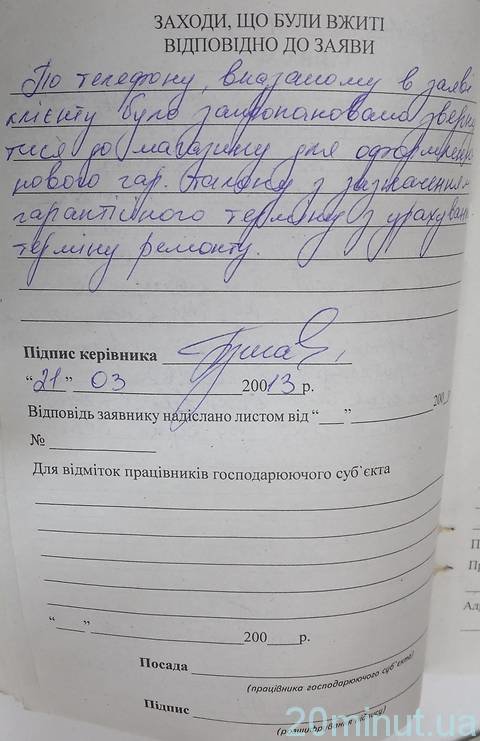 ЗАХОДИ, ЩО БУЛИ ВЖИТІ
ВІДПОВІДНО ДО ЗАЯВИ
По телефону, вказаному в заяві
клієнту було запропоновано зверну
тися до магазину для оформлення
нового гар. талону з зазначенням
гарантійного терміну з урахуван
терміну ремонту.
Підпис керівника
“21” 03 20013 р.
Відповідь заявнику надіслано листом від “ ” 200
№
Для відміток працівників господарюючого суб`єкта
“ ” 200 р.
Посада
(працівника господарюючого суб`єкта)
Підпис
(розшифрування підпису)
20minut.ua